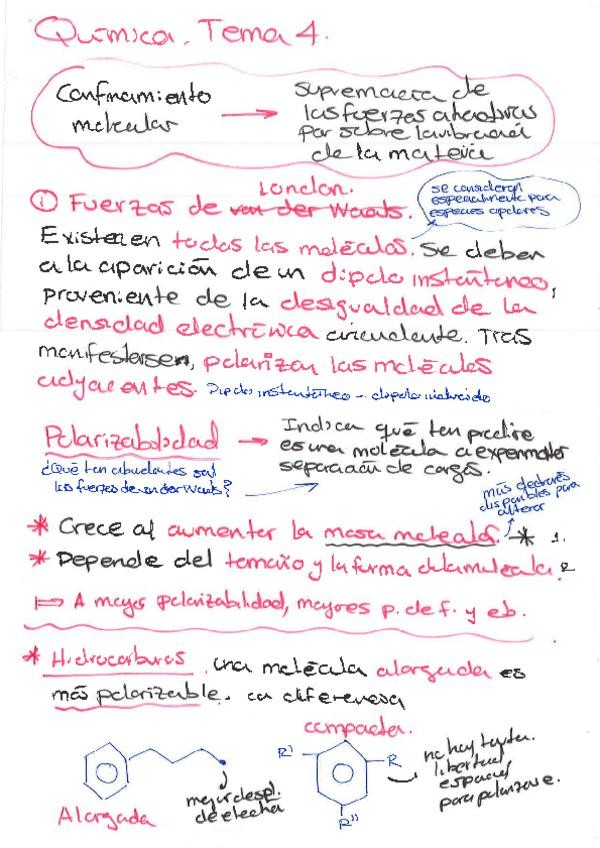 Química. Tema 4.
Confinamiento
molecular
supremacía de
las fuerzas atractivas
por sobre la vibración
de la materia
London.
① Fuerzas de van der Waals.
se consideran
especialmente para
especies apolares
Existen en todas las moléculas. Se deben
a la aparición de un dipolo instantáneo,
proveniente de la desigualdad de la
densidad electrónica circundante. Tras
manifestarsen, polarizan las moléculas
adyacentes. Dipolo instantáneo - dipolo inducido
Polarizabilidad →
Indica qué tan proclive
es una molécula a experimentar
separación de cargas.
¿Qué tan abundantes son
las fuerzas de van der Waals?
más electrones
disponibles para
alterar
* Crece al aumentar la masa molecular. * 1.
* Depende del tamaño y la forma de la molécula 2
↦ A mayor polarizabilidad, mayores p. de f. y eb.
* Hidrocarburos. una molécula alargada es
más polarizable. a diferencia
compacta.
Alargada
mejor despl.
de electro
R'
R
R''
no hay tanta
libertad
espacial
para polarizarse.